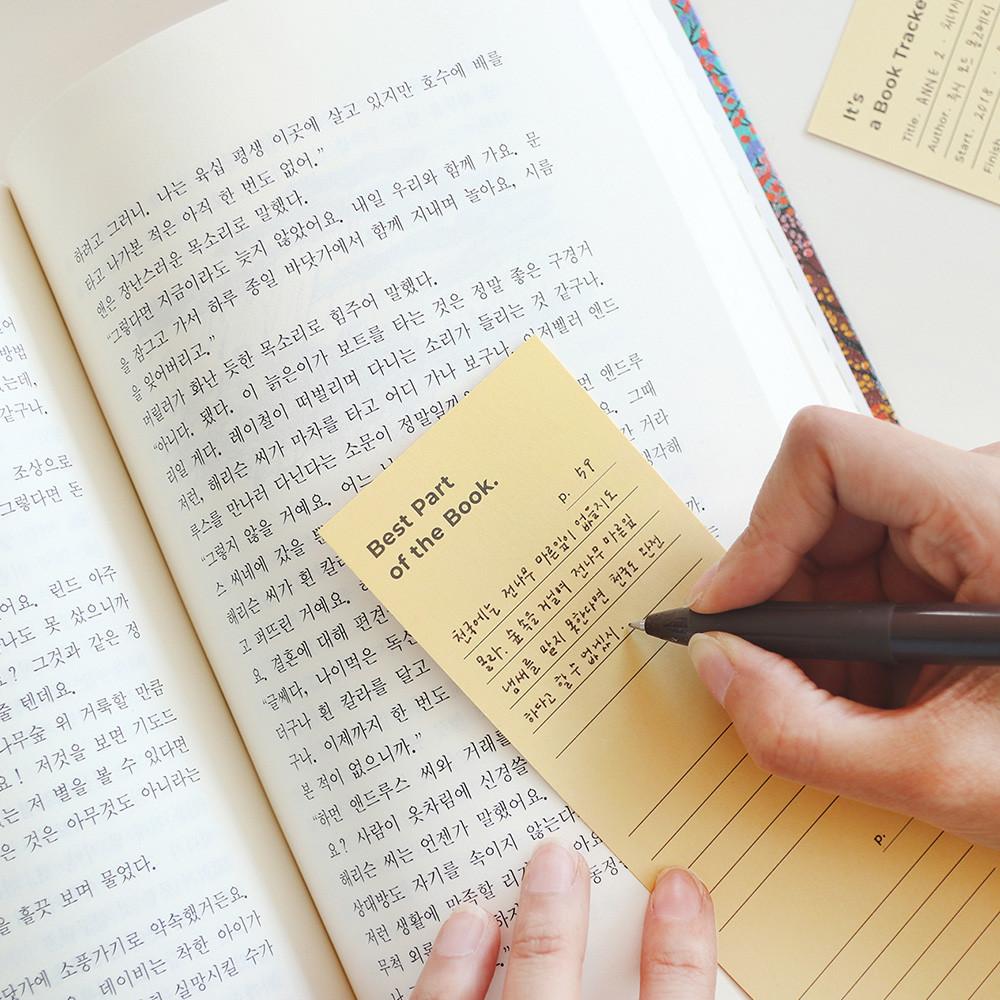 하려고 그러니. 나는 육십 평생 이곳에 살고 있지만 호수에 배를
타고 나가본 적은 아직 한 번도 없어."
앤은 장난스러운 목소리로 말했다.
"그렇다면 지금이라도 늦지 않았어요. 내일 우리와 함께 가요. 문
을 잠그고 가서 하루 종일 바닷가에서 함께 지내며 놀아요, 시름
을 잊어버리고."
머릴러가 화난 듯한 목소리로 힘주어 말했다.
"아니다. 됐다. 이 늙은이가 보트를 타는 것은 정말 좋은 구경거
리일 게다. 레이철이 떠벌리며 다니는 소리가 들리는 것 같구나.
저런, 해리슨 씨가 마차를 타고 어디 가나 보구나. 이저벨러 앤드
루스를 만나러 다닌다는 소문이 정말일까
먼 앤드루
"그렇지 않을 거예요. 어느
요. 그때
스 씨네에 갔을
간 거라
해리슨 씨가 흰 칼라
생각해
고 퍼뜨린 거예요.
요. 결혼에 대해 편견
"글쎄다, 나이먹은 독신
더구나 흰 칼라를 달고
구나. 이제까지 한 번도
본 적이 없으니까."
"하면 앤드루스 씨와 거래를
요? 사람이 옷차림에 신경쓸
해리슨 씨는 언젠가 말했어요.
상대방도 자기를 속이지 않는다
저런 생활에 만족할 리가
무척 외로
방법
는데,
같구나.
조상으로
그렇다면 돈
어요. 린드 아주
나도 못 샀으니까
요? 그것과 같은 정
줄 텐데요.
나무숲 위 거룩할 만큼
요! 저것을 보면 기도드
는 저 별을 볼 수 있다면
은 것은 아무것도 아니라는
을 흘끗 보며 물었다.
닷가에 소풍가기로 약속했거든요.
데이비는 착한 아이가
실망시킬 수가
Best Part
of the Book.
p. 59
천국에는 전나무 바른잎이 없을지도
몰라. 숲속을 거닐며 전나무 마른잎
냄새를 맡지 못한다면 천국도 완전
하다고 할 수 없겠지
p.
It's
a Book Tracke
Title. ANNE 2.
Author. 루시 모드 몽고메리
Start. 2018.
Finish